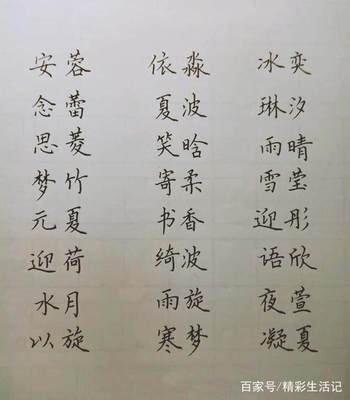 安蓉 依淼 冰奕
念蕾 夏波 琳汐
思菱 笑晗 雨晴
梦竹 寄柔 雪莹
元夏 书香 迎彤
迎荷 绮波 语欣
水月 雨旋 夜萱
以旋 寒梦 凝夏
百家号/精彩生活记